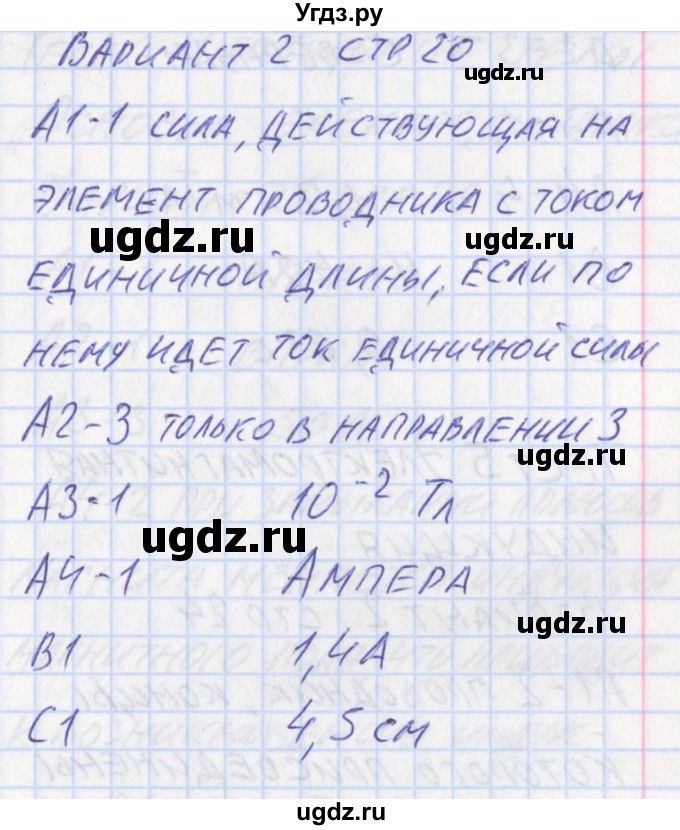 Угдз.ру
ВАРИАНТ 2 СТР 20
ugdz.ru
А1-1 СИЛА, ДЕЙСТВУЮЩАЯ НА
ЭЛЕМЕНТ ПРОВОДНИКА С ТОКОМ
ugdz.ru
ugdz.ru
ЕДИНИЧНОЙ ДЛИНЫ, ЕСЛИ ПО
НЕМУ ИДЕТ ТОК ЕДИНИЧНОЙ СИЛЫ
А2-3 ТОЛЬКО В НАПРАВЛЕНИИ 3
ugdz.ru
А3-1 10⁻² Тл
ugdz.ru
А4-1 АМПЕРА
ugdz.ru
В1 1,4А
ugdz.ru
С1 4,5 см
ugdz.ru